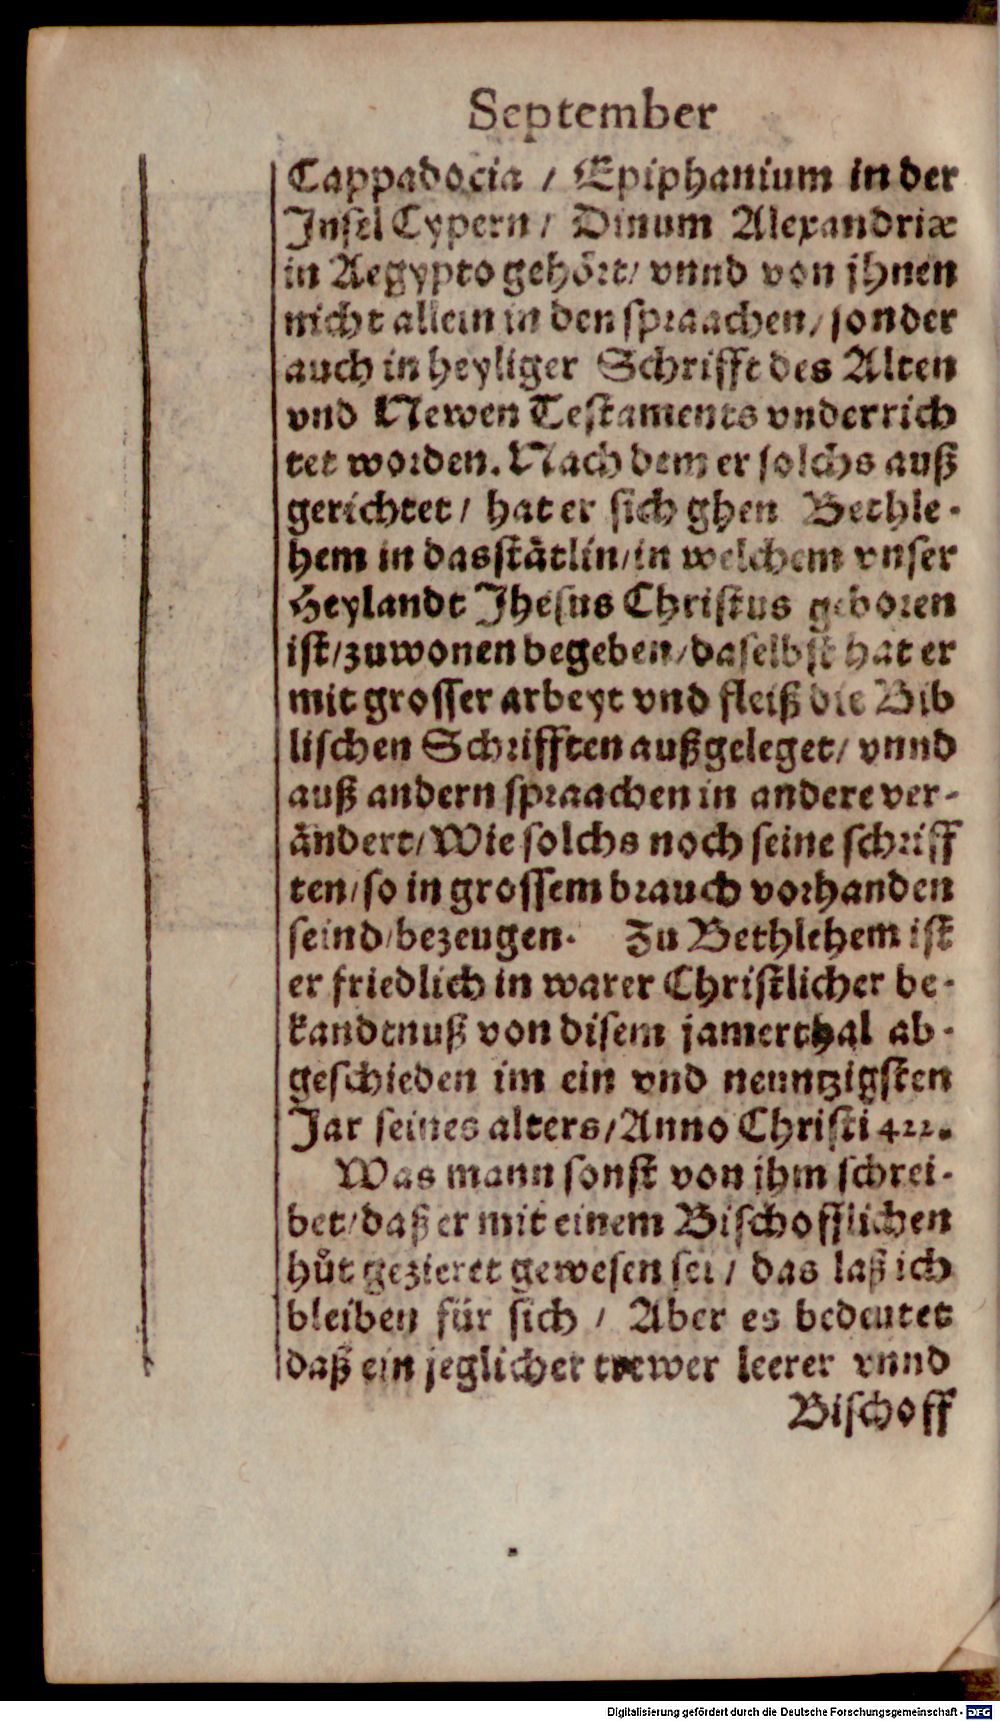 September
Cappadocia / Epiphanium in der
Jnsel Cypern / Dinum Alexandriæ
in Aegypto gehört / vnnd von jhnen
nicht allein in den spraachen / sonder
auch in heyliger Schrifft des Alten
vnd Newen Testaments vnderrich
tet worden. Nach dem er solchs auß
gerichtet / hat er sich ghen Bethle-
hem in das stätlin / in welchem vnser
Heylandt Jhesus Christus geboren
ist / zuwonen begeben / daselbst hat er
mit grosser arbeyt vnd fleiß die Bib
lischen Schrifften außgeleget / vnnd
auß andern spraachen in andere ver-
ändert / Wie solchs noch seine schriff
ten / so in grossem brauch vorhanden
seind / bezeugen. Zu Bethlehem ist
er friedlich in warer Christlicher be-
kandtnuß von disem jamerthal ab-
geschieden im ein vnd neuntzigsten
Jar seines alters / Anno Christi 422.
Was mann sonst von jhm schrei-
bet / daß er mit einem Bischofflichen
hůt gezieret gewesen sei / das laß ich
bleiben für sich / Aber es bedeutet
daß ein jeglicher trewer leerer vnnd
Bischoff
Digitalisierung gefördert durch die Deutsche Forschungsgemeinschaft - DFG